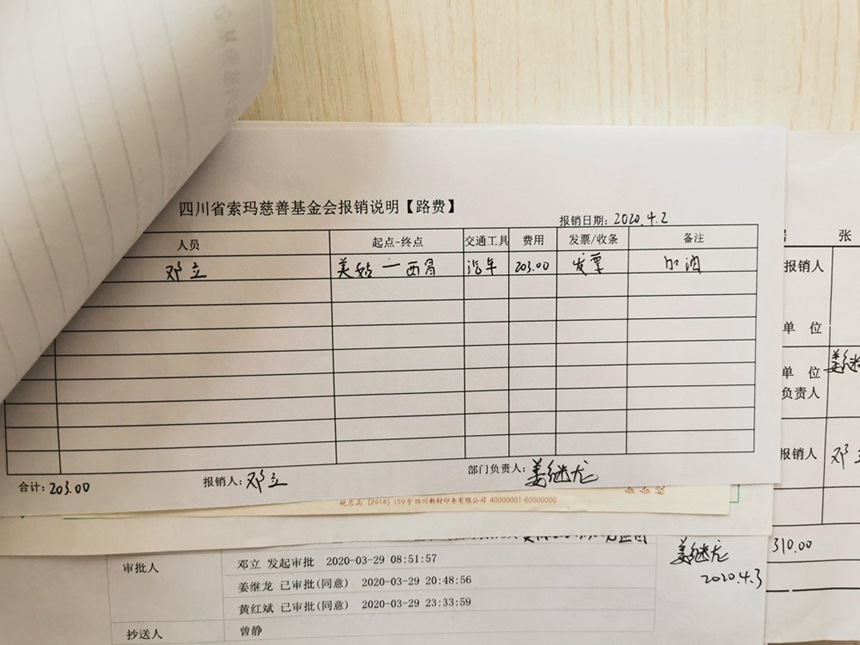 四川省索玛慈善基金会报销说明【路费】
报销日期：2020.4.2
人员 起点-终点 交通工具 费用 发票/收条 备注
邓立 美姑一西昌 汽车 203.00 发票 加油
合计：203.00 报销人：邓立 部门负责人：姜继龙
税总函 [2016] 159号 四川新财印务有限公司 40000001-60000000
张
报销人
单 位
单 位
负责人
姜继
报销人 邓立
310.00
姜继龙
2020.4.3
审批人
邓立 发起审批 2020-03-29 08:51:57
姜继龙 已审批(同意) 2020-03-29 20:48:56
黄红斌 已审批(同意) 2020-03-29 23:33:59
抄送人 曾静